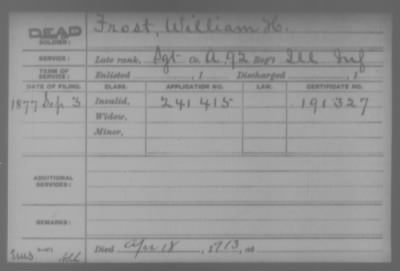 DEAD Frost, William H.
SOLDIER:
SERVICE: Late rank, Sgt Co. A, 92 Reg't Ill Inf
TERM OF SERVICE: Enlisted , 1 Discharged , 1
DATE OF FILING. CLASS. APPLICATION NO. LAW. CERTIFICATE NO.
1877 Sep 3 Invalid, 241415 191327
Widow,
Minor,
ADDITIONAL SERVICES:
REMARKS:
Died Apr 18, 1913, at